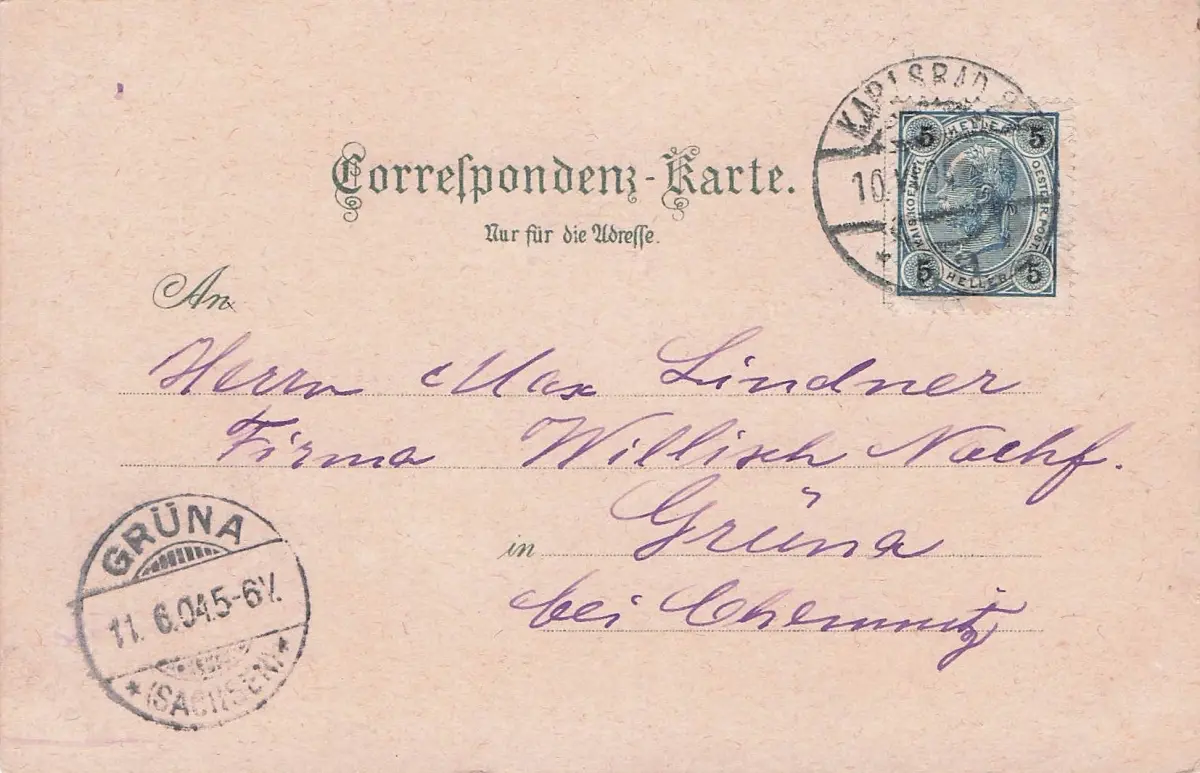 KARLSBAD
10.
5 HELLER 5
KAIS. KOENIGL.
OESTERR. POST.
5 HELLER 5
Correſpondenz-Karte.
Nur für die Adreſſe.
An
Herrn Max Lindner
Firma Willisch Nachf.
in Grüna
bei Chemnitz
GRÜNA
11. 6. 04. 5-6 V.
* (SACHSEN) *